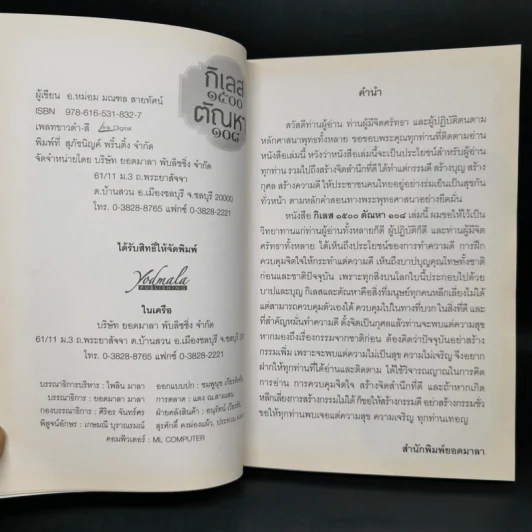 กิเลส
๑๕๐๐
ตัณหา
๑๐๘
ผู้เขียน อ.หม่อม มณฑล สายทัศน์
ISBN 978-616-531-832-7
เพลทขาวดำ-สี Digital
พิมพ์ที่ สุภัชนิญค์ พริ้นติ้ง จำกัด
จัดจำหน่ายโดย บริษัท ยอดมาลา พับลิชชิ่ง จำกัด
61/11 ม.3 ถ.พระยาสัจจา
ต.บ้านสวน อ.เมืองชลบุรี จ.ชลบุรี 20000
โทร. 0-3828-8765 แฟกซ์ 0-3828-2221
ได้รับสิทธิ์ให้จัดพิมพ์
Yodmala
PUBLISHING
ในเครือ
บริษัท ยอดมาลา พับลิชชิ่ง จำกัด
61/11 ม.3 ถ.พระยาสัจจา ต.บ้านสวน อ.เมืองชลบุรี จ.ชลบุรี
โทร. 0-3828-8765 แฟกซ์ 0-3828-2221
บรรณาธิการบริหาร : ไพลิน มาลา
ออกแบบปก : ชมพูนุช
บรรณาธิการ : ยอดมาลา
การตลาด : แดง
กองบรรณาธิการ : ศิริอร จันทร์ศร
ฝ่ายคลังสินค้า : อนุรัตน์
พิสูจน์อักษร : เกษมณี บุราณรมณ์
สุรศักดิ์
คอมพิวเตอร์ : ML COMPUTER
คำนำ
สวัสดีท่านผู้อ่าน ท่านผู้มีจิตศรัทธา และผู้ปฏิบัติตนตาม
หลักศาสนาพุทธทั้งหลาย ขอขอบพระคุณทุกท่านที่ติดตามอ่าน
หนังสือเล่มนี้ หวังว่าหนังสือเล่มนี้จะเป็นประโยชน์สำหรับผู้อ่าน
ทุกท่าน รวมไปถึงสร้างจิตสำนึกที่ดี ได้ทำแต่กรรมดี สร้างบุญ สร้าง
กุศล สร้างความดี ให้ประชาชนคนไทยอยู่อย่างร่มเย็นเป็นสุขกัน
ทั่วหน้า ตามหลักคำสอนทางพระพุทธศาสนาอย่างยืนมั่น
หนังสือ กิเลส ๑๕๐๐ ตัณหา ๑๐๘ เล่มนี้ ผมขอให้ไว้เป็น
วิทยาทานแก่ท่านผู้อ่านทั้งหลายก็ดี ผู้ปฏิบัติก็ดี และท่านผู้มีจิต
ศรัทธาทั้งหลาย ได้เห็นถึงประโยชน์ของการทำความดี การฝึก
ควบคุมจิตใจให้กระทำแต่ความดี เห็นถึงบาปบุญคุณโทษทั้งชาติ
ก่อนและชาติปัจจุบัน เพราะทุกสิ่งบนโลกใบนี้ประกอบไปด้วย
บาปและบุญ กิเลสและตัณหาคือสิ่งที่มนุษย์ทุกคนหลีกเลี่ยงไม่ได้
แต่สามารถควบคุมตัวเองได้ ควบคุมไปในทางที่บวก ในสิ่งที่ดี และ
ที่สำคัญหมั่นทำความดี ตั้งจิตเป็นกุศลแล้วท่านจะพบแต่ความสุข
หากมองถึงเรื่องกรรมจากชาติก่อน ต้องคิดว่าปัจจุบันอย่าสร้าง
กรรมเพิ่ม เพราะจะพบแต่ความไม่เป็นสุข ความไม่เจริญ จึงอยาก
ฝากให้ทุกท่านที่ได้อ่านและติดตาม ได้ใช้วิจารณญาณในการคิด
การอ่าน การควบคุมจิตใจ สร้างจิตสำนึกที่ดี และถ้าหากเกิด
หลีกเลี่ยงการสร้างกรรมไม่ได้ ก็ขอให้สร้างกรรมดี อย่าสร้างกรรมชั่ว
ขอให้ทุกท่านพบเจอแต่ความสุข ความเจริญ ทุกท่านเทอญ
สำนักพิมพ์ยอดมาลา